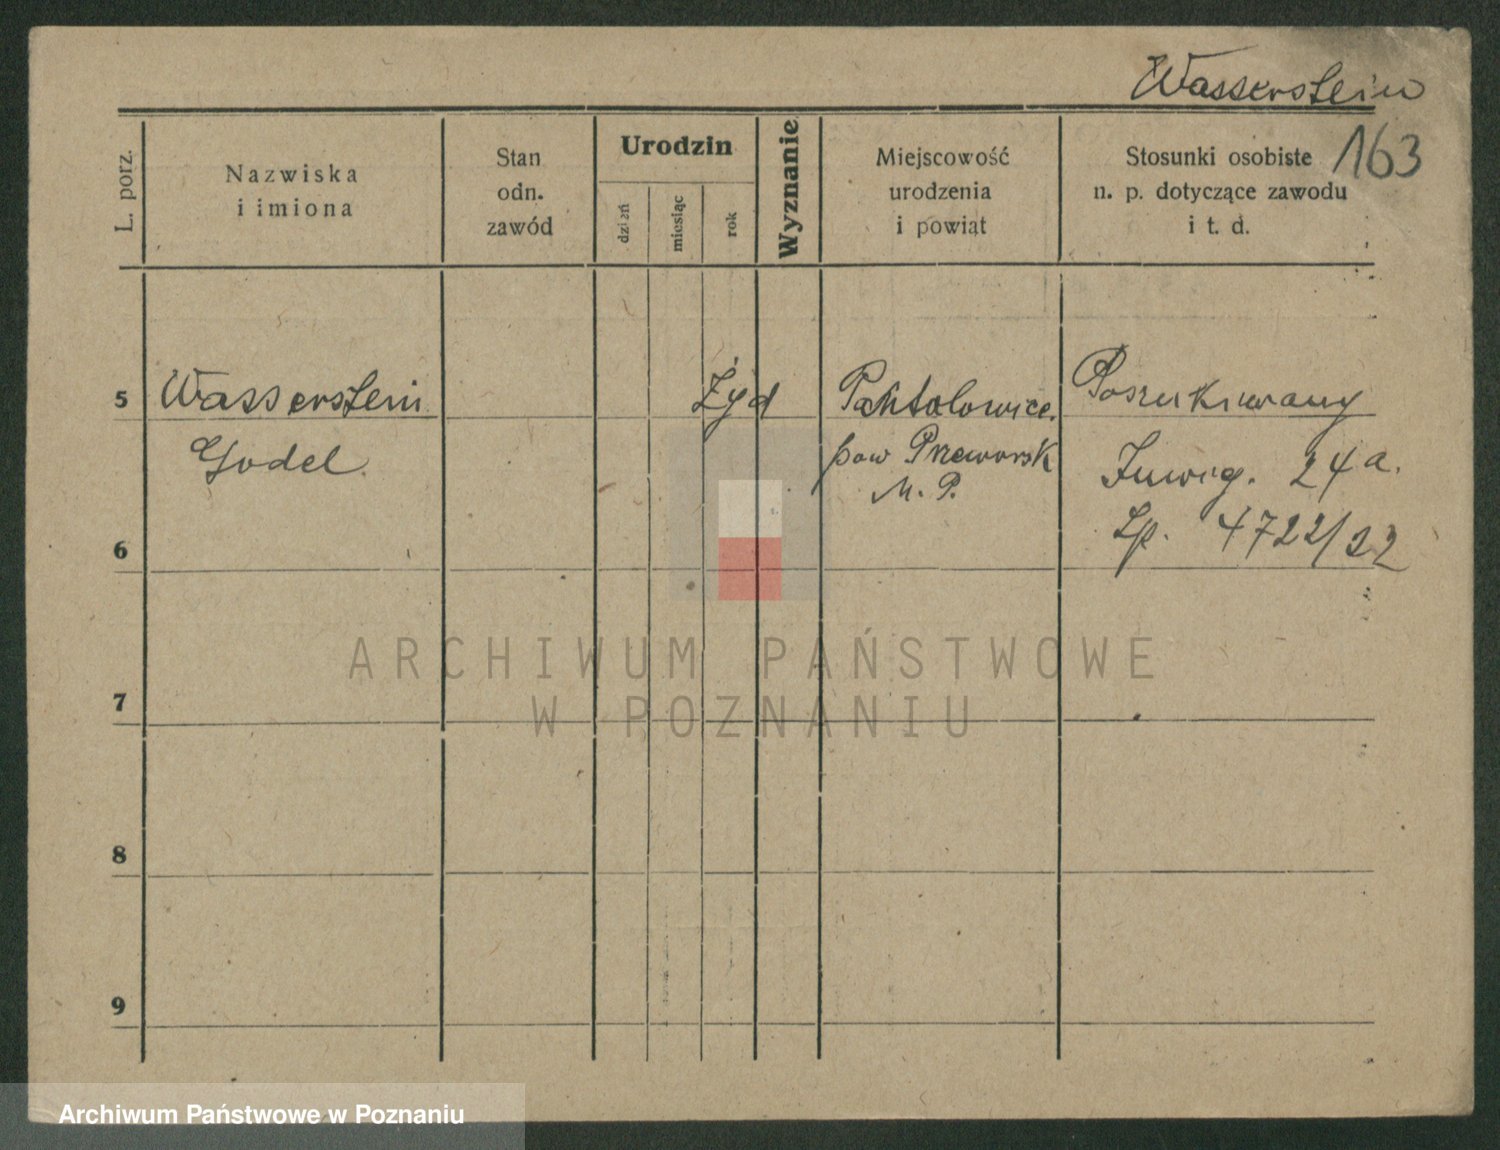 Wasserstein
163
L. porz.
Nazwiska
i imiona
Stan
odn.
zawód
Urodzin
dzień
miesiąc
rok
Wyznanie
Miejscowość
urodzenia
i powiat
Stosunki osobiste
n. p. dotyczące zawodu
i t. d.
5
Wasserstein
Godel.
Żyd
Pantalowice.
pow Przeworsk
M. P.
Poszukiwany
24a.
Lp. 4722/32
6
7
8
9
ARCHIWUM PAŃSTWOWE
W POZNANIU
Archiwum Państwowe w Poznaniu